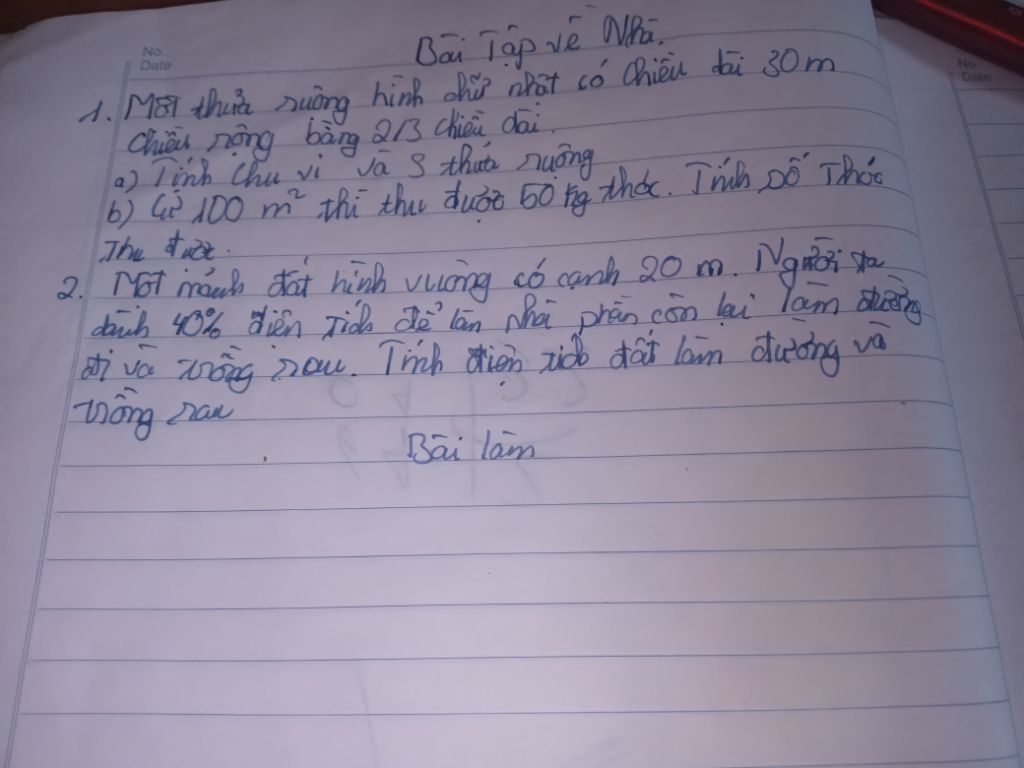 No.
Date
Bài Tập về Nhà.
1. Một thửa ruộng hình chữ nhật có chiều dài 30 m
chiều rộng bằng 2/3 chiều dài.
a) Tính chu vi và S thửa ruộng
b) Cứ 100 m² thì thu được 50 kg thóc. Tính số Thóc
Thu được.
2. Một mảnh đất hình vuông có cạnh 20 m. Người ta
dành 40% diện tích để làn nhà phần còn lại làm đường
đi và trồng rau. Tính diện tích đất làm đường và
trồng rau
Bài làm
No
Date